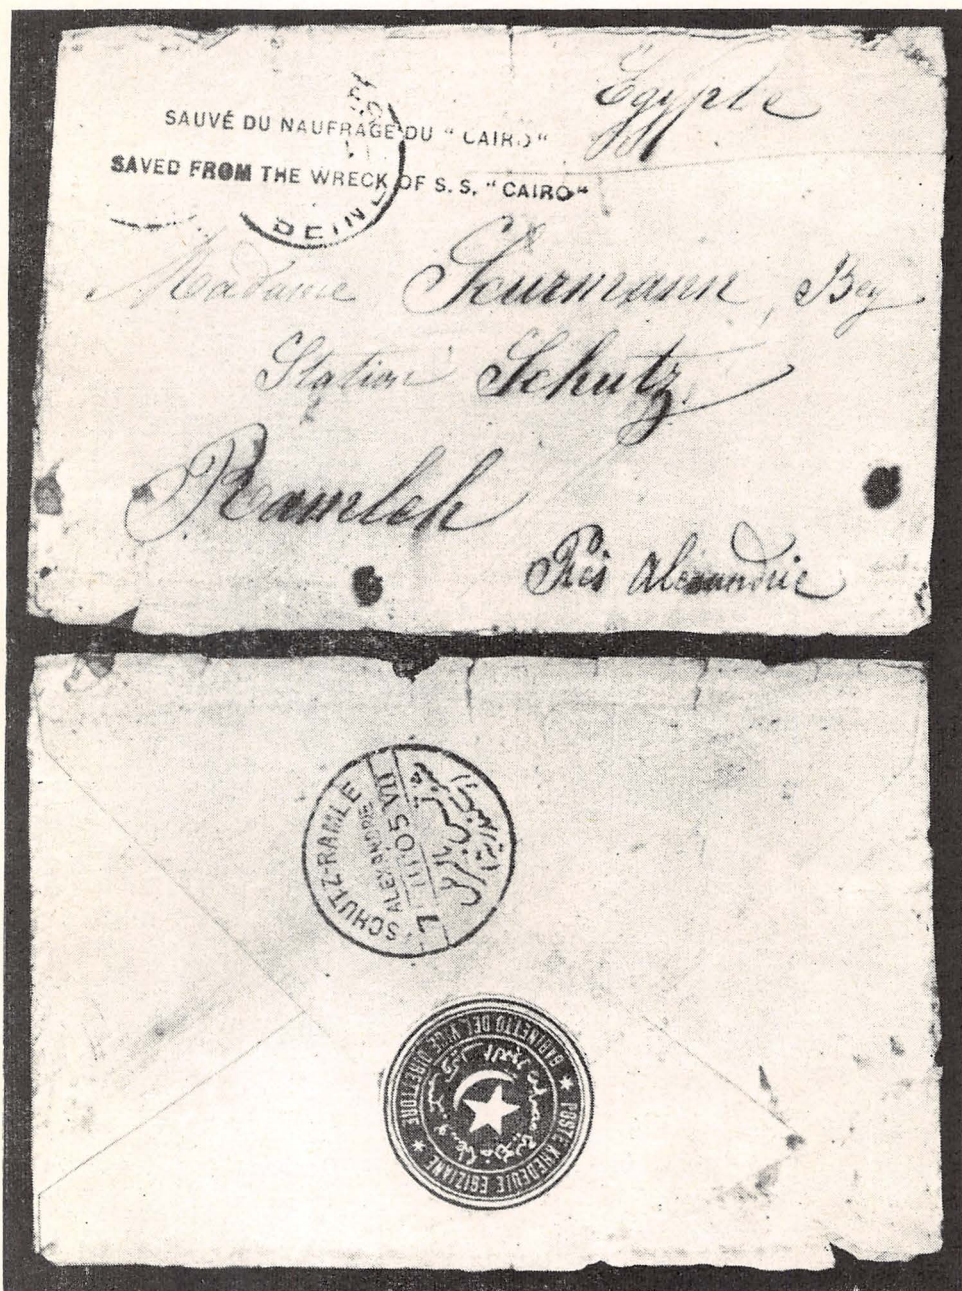 Egypte
SAUVÉ DU NAUFRAGE DU " CAIRO "
SAVED FROM THE WRECK OF S. S. " CAIRO "
BEINE
Madame Scurmann, Bey
Station Schutz
Ramleh
Près Alexandrie
SCHUTZ-RAMLE
ALEXANDRIE
05 VII
POSTE KHEDEUIE EGIZIANE ★ GABINETTO DEL VICE DIRETTORE ★